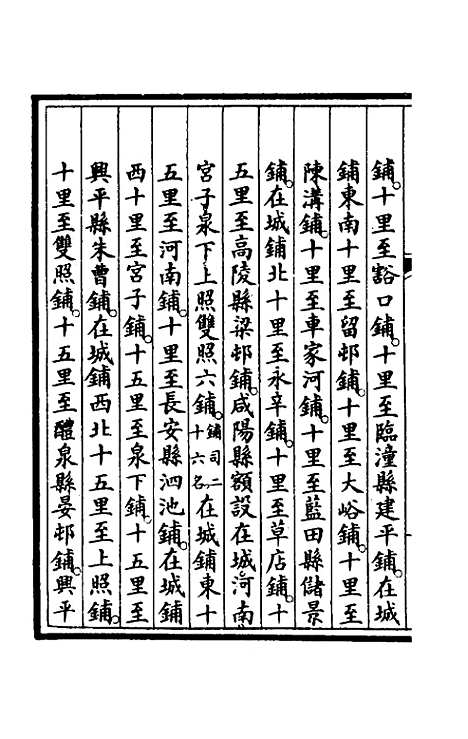 鋪。十里至豁口鋪。十里至臨潼縣建平鋪。在城
鋪東南十里至留邨鋪。十里至大峪鋪。十里至
陳溝鋪。十里至車家河鋪。十里至藍田縣儲景
鋪。在城鋪北十里至永辛鋪。十里至草店鋪。十
五里至高陵縣梁邨鋪。咸陽縣額設在城河南
宮子泉下上照雙照六鋪。鋪司二十六名。在城鋪東十
五里至河南鋪。十里至長安縣泗池鋪。在城鋪
西十里至宮子鋪。十五里至泉下鋪。十五里至
興平縣朱曹鋪。在城鋪西北十五里至上照鋪。
十里至雙照鋪。十五里至醴泉縣晏邨鋪。興平